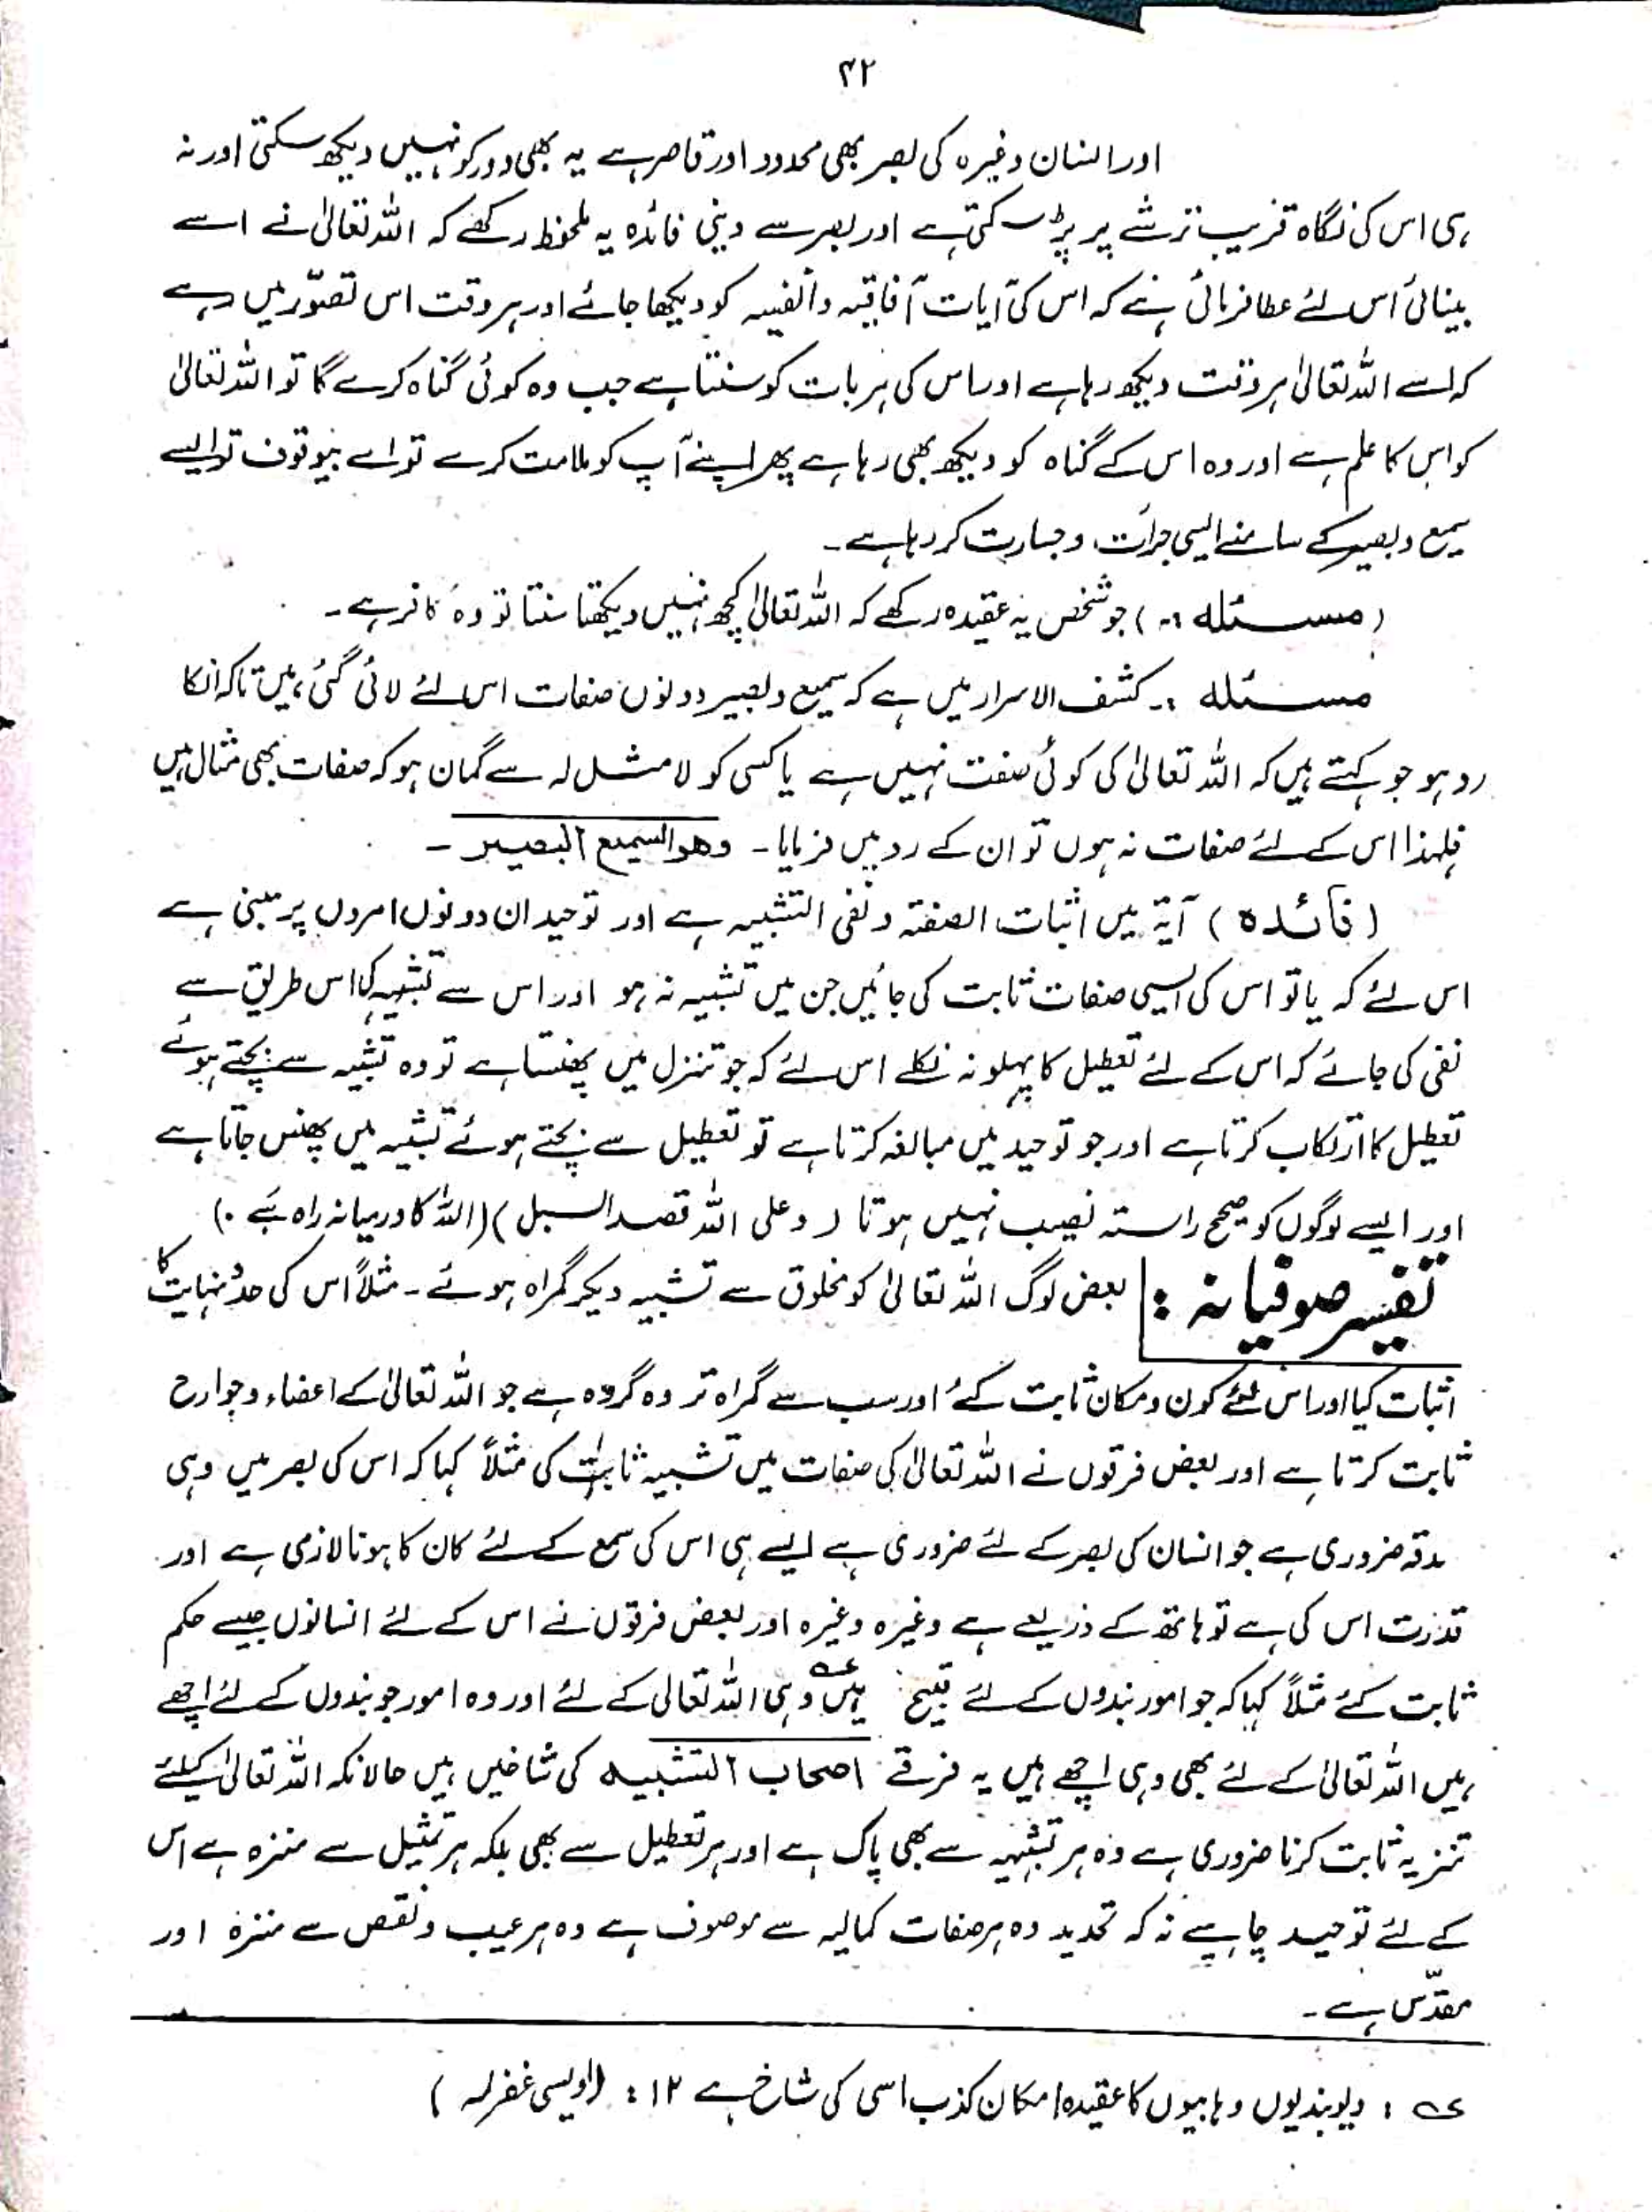 ۴۲
اور انسان وغیرہ کی بصر بھی محدود اور قاصر ہے یہ بھی دور کو نہیں دیکھ سکتی اور نہ
ہی اس کی نگاہ قریب تر شے پر پڑ سکتی ہے اور بصر سے دینی فائدہ یہ ملحوظ رکھے کہ اللہ تعالیٰ نے اسے
بینائی اس لئے عطا فرمائی ہے کہ اس کی آیات آفاقیہ وانفسیہ کو دیکھا جائے اور ہر وقت اس تصوّر میں رہے
کہ اسے اللہ تعالیٰ ہر وقت دیکھ رہا ہے اور اس کی ہر بات کو سنتا ہے جب وہ کوئی گناہ کرے گا تو اللہ تعالیٰ
کو اس کا علم ہے اور وہ اس کے گناہ کو دیکھ بھی رہا ہے پھر اپنے آپ کو ملامت کرے تو اے بیوقوف تو ایسے
سمیع وبصیر کے سامنے ایسی جرات وجسارت کر رہا ہے۔
(مسئلہ :۔) جو شخص یہ عقیدہ رکھے کہ اللہ تعالیٰ کچھ نہیں دیکھتا سنتا تو وہ کافر ہے۔
مسئلہ :۔ کشف الاسرار میں ہے کہ سمیع وبصیر دونوں صفات اس لئے لائی گئی ہیں تاکہ انکا
رد ہو جو کہتے ہیں کہ اللہ تعالیٰ کی کوئی صفت نہیں ہے یا کسی کو لا مثل لہ سے گمان ہو کہ صفات بھی مثال ہیں
فلہذا اس کے لئے صفات نہ ہوں تو ان کے رد میں فرمایا۔ وھو السمیع البصیر۔
(فائدہ) آیۃ میں اثبات الصفتہ ونفی التشبیہ ہے اور توحید ان دونوں امروں پر مبنی ہے
اس لئے کہ یا تو اس کی ایسی صفات ثابت کی جائیں جن میں تشبیہ نہ ہو اور اس سے تشبیہ کی اس طریق سے
نفی کی جائے کہ اس کے لئے تعطیل کا پہلو نہ نکلے اس لئے کہ جو تنزل میں پھنستا ہے تو وہ تشبیہ سے بچتے ہوئے
تعطیل کا ارتکاب کرتا ہے اور جو توحید میں مبالغہ کرتا ہے تو تعطیل سے بچتے ہوئے تشبیہ میں پھنس جاتا ہے
اور ایسے لوگوں کو صحیح راستہ نصیب نہیں ہوتا (وعلی اللہ قصد السبیل) (اللہ کا درمیانہ راہ ہے۔)
تفسیر صوفیانہ : بعض لوگ اللہ تعالیٰ کو مخلوق سے تشبیہ دیکر گمراہ ہوئے۔ مثلاً اس کی حد ونہایت کا
اثبات کیا اور اس لئے کون ومکان ثابت کئے اور سب سے گمراہ تر وہ گروہ ہے جو اللہ تعالیٰ کے اعضاء وجوارح
ثابت کرتا ہے اور بعض فرقوں نے اللہ تعالیٰ کی صفات میں تشبیہ ثابت کی مثلاً کہا کہ اس کی بصر میں وہی
حدقہ ضروری ہے جو انسان کی بصر کے لئے ضروری ہے ایسے ہی اس کی سمع کے لئے کان کا ہونا لازمی ہے اور
قدرت اس کی ہے تو ہاتھ کے ذریعے ہے وغیرہ وغیرہ اور بعض فرقوں نے اس کے لئے انسانوں جیسے حکم
ثابت کئے مثلاً کہا کہ جو امور بندوں کے لئے قبیح ہیں عہ وہی اللہ تعالی کے لئے اور وہ امور جو بندوں کے لئے اچھے
ہیں اللہ تعالیٰ کے لئے بھی وہی اچھے ہیں یہ فرقے اصحاب التشبیہ کی شاخیں ہیں حالانکہ اللہ تعالیٰ کیلئے
تنزیہ ثابت کرنا ضروری ہے وہ ہر تشبیہہ سے بھی پاک ہے اور ہر تعطیل سے بھی بلکہ ہر تمثیل سے منزہ ہے اس
کے لئے توحید چاہیے نہ کہ تحدید وہ ہر صفات کمالیہ سے موصوف ہے وہ ہر عیب ونقص سے منزہ اور
مقدّس ہے۔
عہ : دیوبندیوں وہابیوں کا عقیدہ امکان کذب اسی کی شاخ ہے ۱۲ : (اویسی غفرلہ)